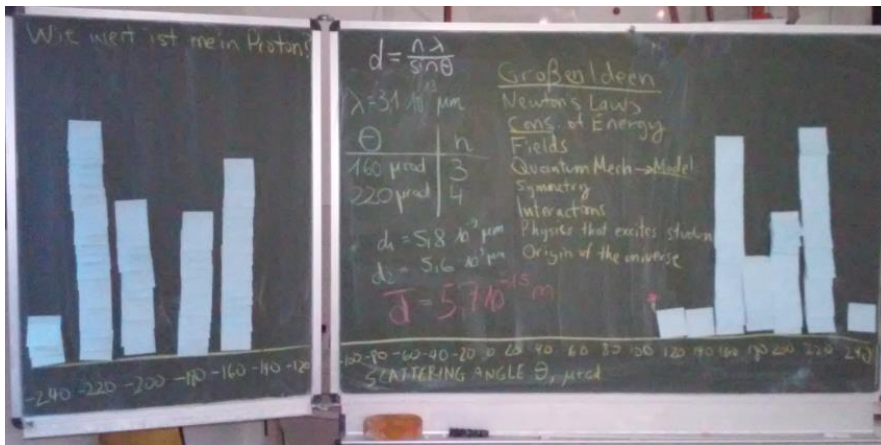 Wie wert ist mein Proton?
-240 -220 -200 -180 -160 -140 -120
d = nλ/sinθ
λ = 3,1 10⁻¹³ µm
θ n
160 µrad 3
220 µrad 4
d₁ = 5,8 10⁻⁹ µm
d₂ = 5,6 10⁻⁹ µm
d̅ = 5,7 10⁻¹⁵ m
Große Ideen
Newtons Laws
Cons. of Energy
Fields
Quantum Mech → Model
Symmetry
Interactions
Physics that excites studen
Origin of the universe
-100 -80 -60 -40 -20 0 20 40 60 80 100 120 140 160 180 200 220 240
SCATTERING ANGLE θ, µrad